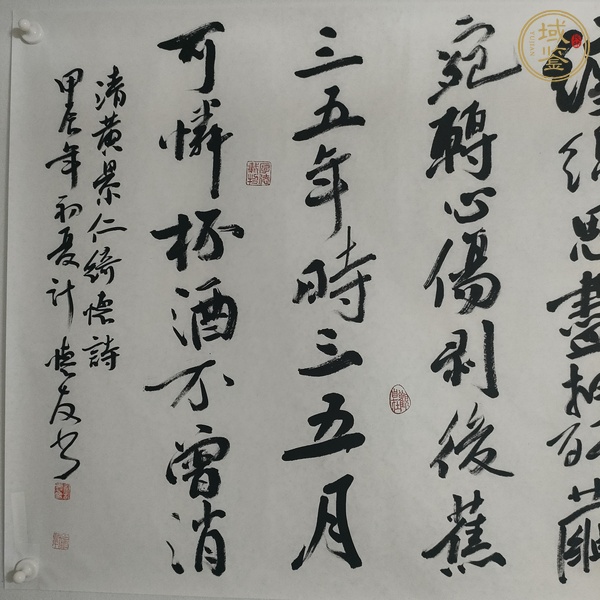 纏綿思盡抽殘繭
宛轉心傷剥後蕉
三五年時三五月
可憐杯酒不曾消
清黄景仁綺懷詩
甲辰年初夏計懷友书
域鉴